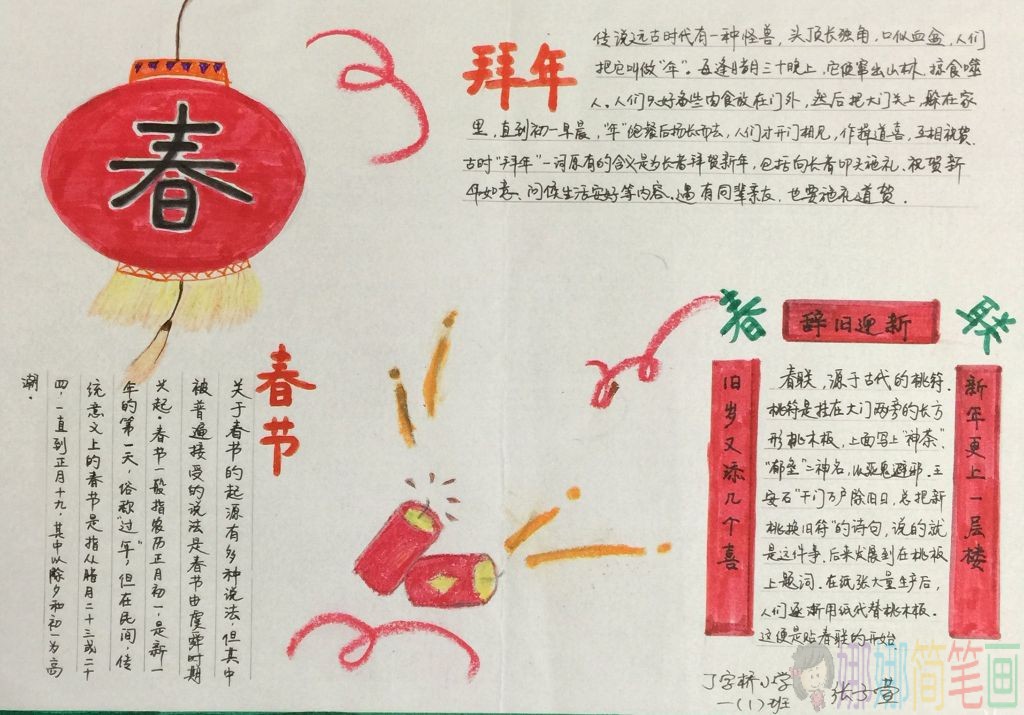 春
拜年
传说远古时代有一种怪兽，头顶长独角，口似血盆，人们
把它叫做“年”。每逢腊月三十晚上，它便窜出山林，掠食噬
人。人们只好备些肉食放在门外，然后把大门关上，躲在家
里，直到初一早晨，“年”饱餐后扬长而去，人们才开门相见，作揖道喜，互相祝贺。
古时“拜年”一词原有的含义是为长者拜贺新年，包括向长者叩头施礼、祝贺新
年如意、问候生活安好等内容。遇有同辈亲友，也要施礼道贺。
春节
关于春节的起源有多种说法，但其中
被普遍接受的说法是春节由虞舜时期
兴起。春节一般指农历正月初一，是新一
年的第一天，俗称“过年”，但在民间，传
统意义上的春节是指从腊月二十三或二十
四，一直到正月十九，其中以除夕和初一为高
潮。
春联
辞旧迎新
旧岁又添几个喜
新年更上一层楼
春联，源于古代的桃符。
桃符是挂在大门两旁的长方
形桃木板，上面写上“神荼”
“郁垒”二神名，以驱鬼避邪。王
安石“千门万户瞳旧日，总把新
桃换旧符”的诗句，说的就
是这件事，后来发展到在桃板
上题词。在纸张大量生产后，
人们逐渐用纸代替桃木板。
这便是贴春联的开始
丁字桥小学
一(1)班 张子萱
娜娜简笔画